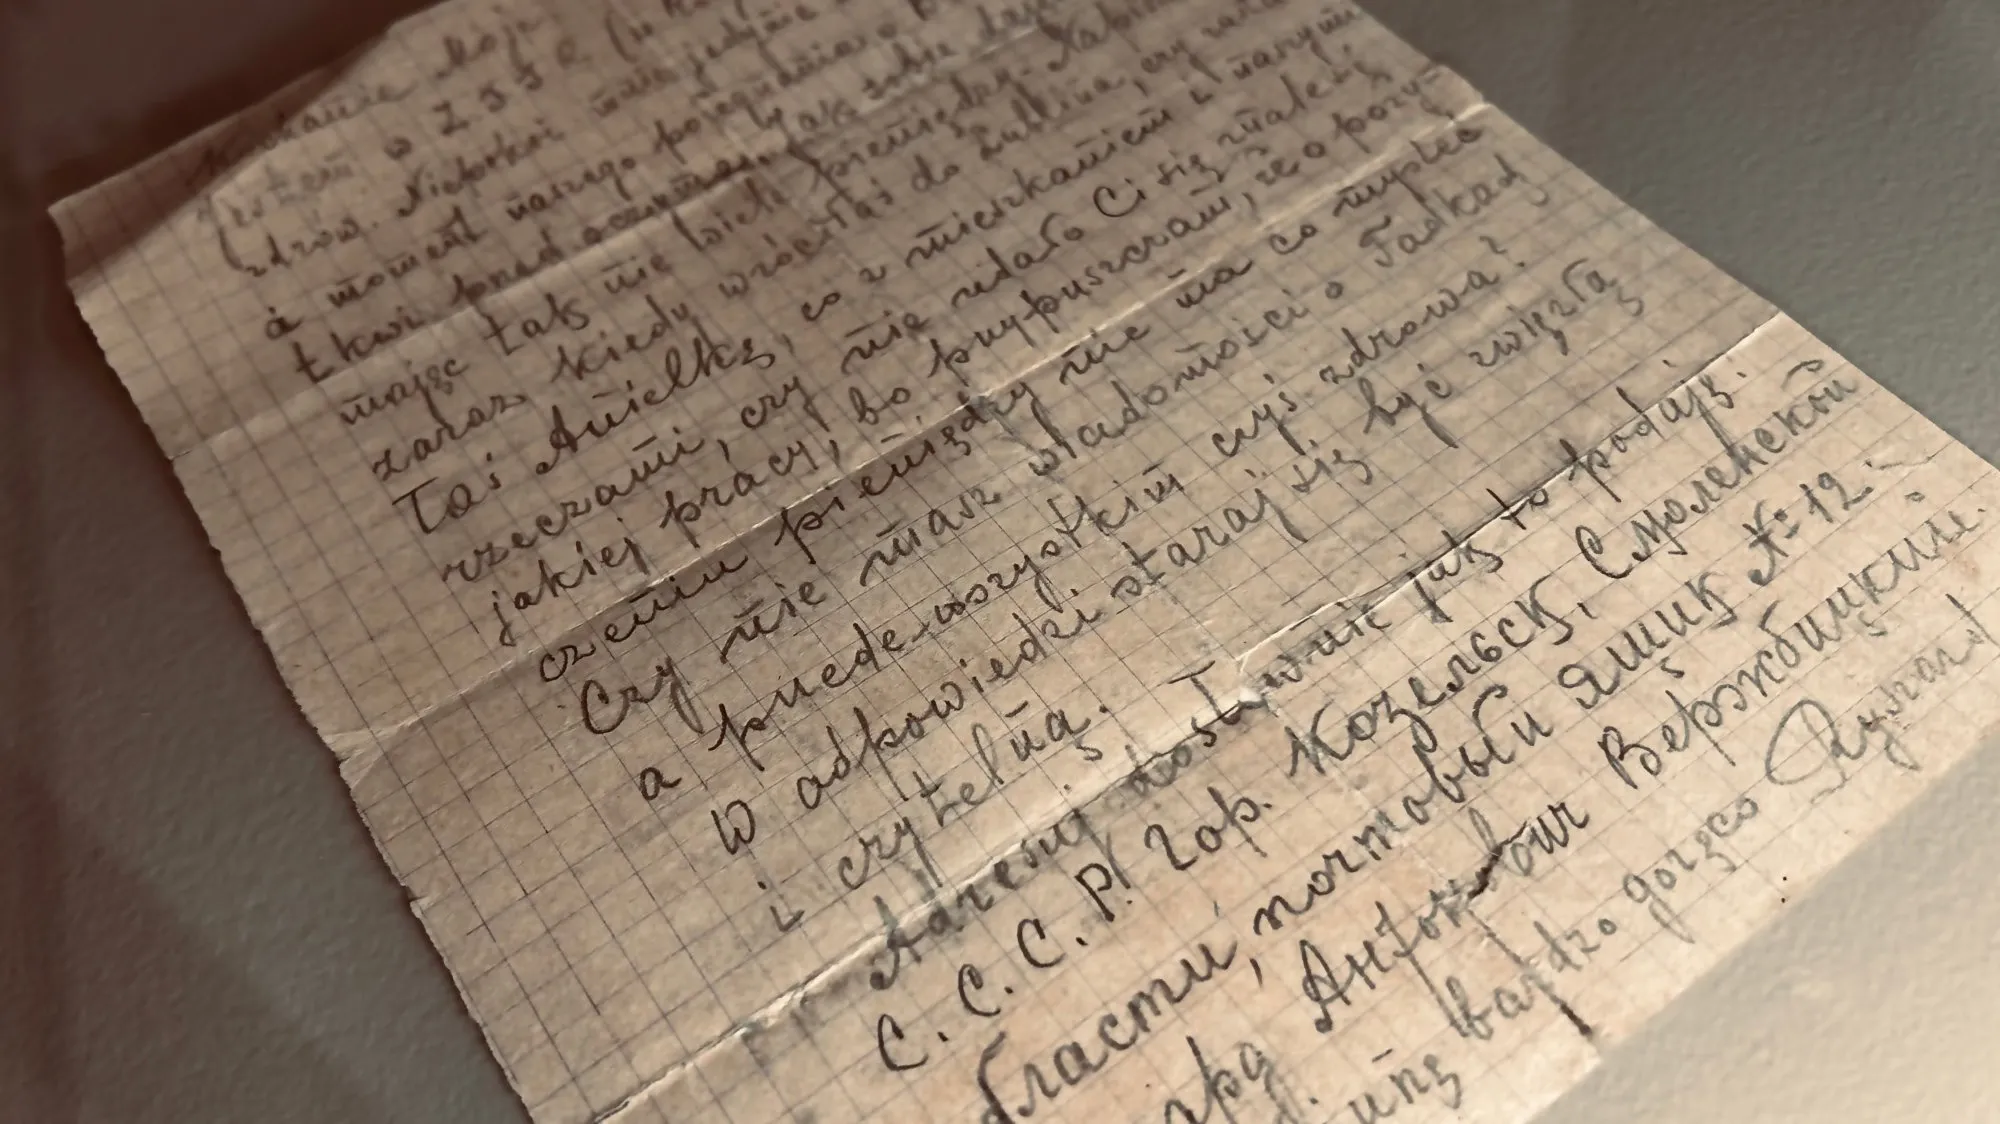 Kochanie Moje
Jestem w ZSSR (w
zdrów. Niepokoi mnie jedynie
a moment naszego pożegnania
tkwi przed oczyma. Jak sobie
mając tak nie wiele pieniędzy. Napisz
zaraz kiedy wróciłaś do Lublina, czy
Toś Anielkę, co z mieszkaniem i naszymi
rzeczami, czy nie udało Ci się znaleźć
jakiej pracy, bo przypuszczam, że o pozy-
czeniu pieniędzy nie ma co myśleć
Czy nie masz wiadomości o Tadkach
a przede-wszystkim czyś zdrowa?
W odpowiedzi staraj się być zwięzłą
i czytelną.
Adresuj dosłownie jak to podaję.
С. С. С. Р. гор. Козельск, Смоленской
бласти, почтовый Ящик № 12.
рд Антонович Вержбицкий.
bardzo gorąco Ryszard